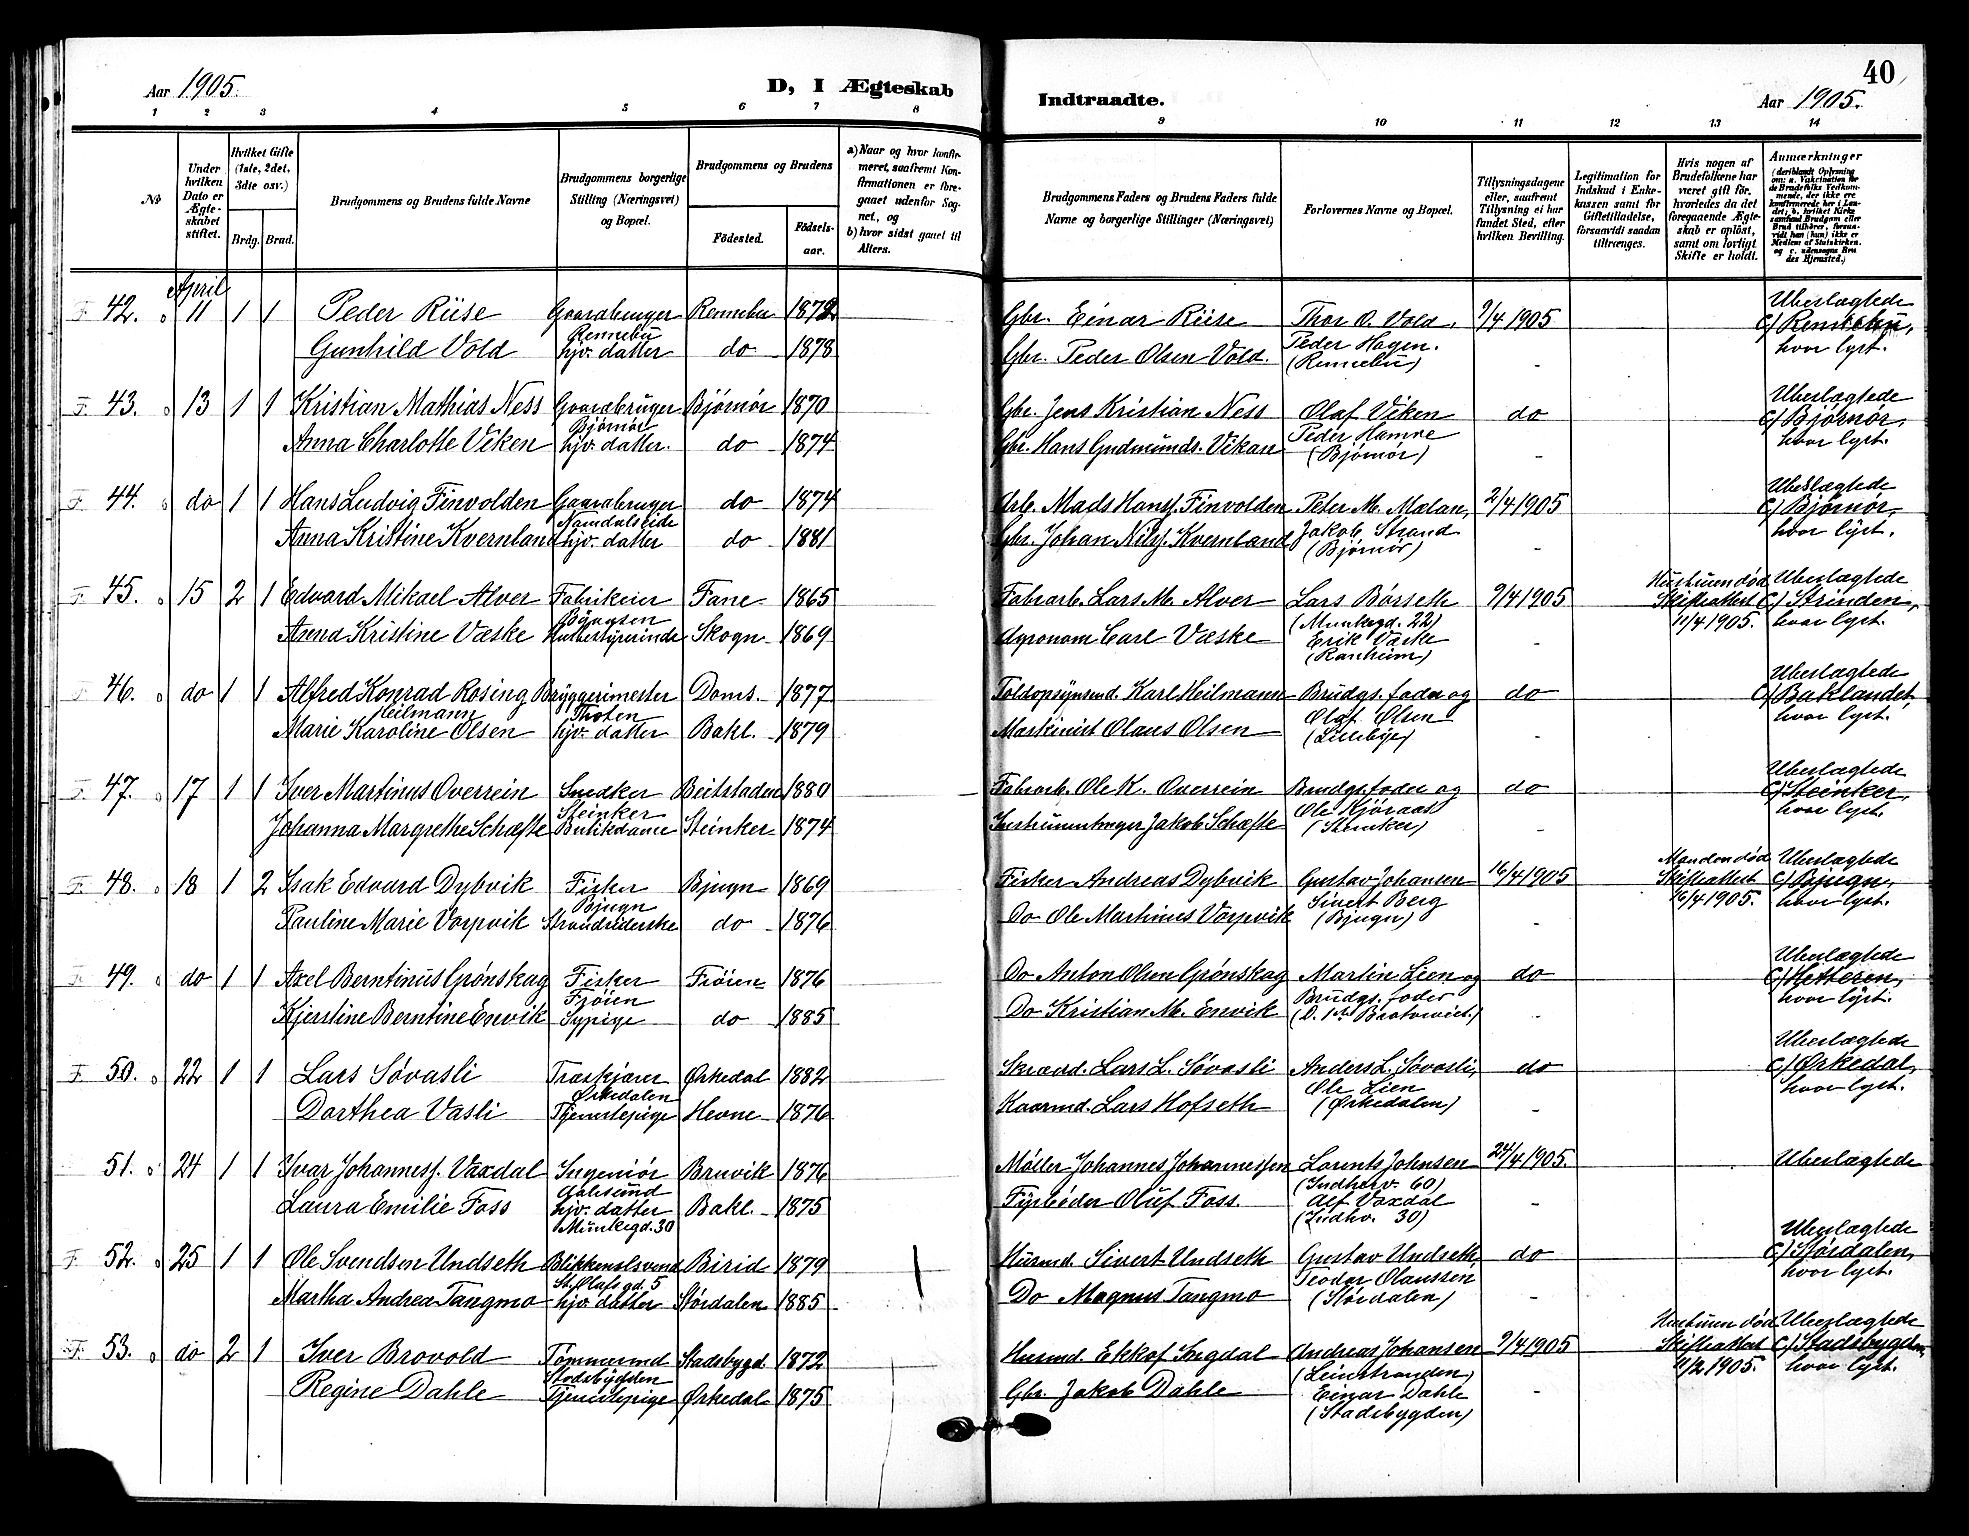 Aar 1905.
D, I Ægteskab
Indtraadte.
40
Aar 1905.
1 2 3 4 5 6 7 8 9 10 11 12 13 14
No
Under hvilken Dato er Ægteskabet stiftet.
Hvilket Gifte (1ste, 2det, 3die osv.)
Brdg. Brud.
Brudgommens og Brudens fulde Navne
Brudgommens borgerlige Stilling (Næringsvei) og Bopæl.
Brudgommens og Brudens
Fødested.
Fødselsaar.
a) Naar og hvor konfirmeret, saafremt Konfirmationen er foregaaet udenfor Sognet, og
b) hvor sidst gaaet til Alters.
Brudgommens Faders og Brudens Faders fulde Navne og borgerlige Stillinger (Næringsvei)
Forlovernes Navne og Bopæl.
Tillysningsdagene eller, saafremt Tillysning ei har fundet Sted, efter hvilken Bevilling.
Legitimation for Indskud i Enkekassen samt for Giftetilladelse, forsaavidt saadan tiltrænges.
Hvis nogen af Brudefolkene har været gift før, hvorledes da det foregaaende Ægteskab er opløst, samt om lovligt Skifte er holdt.
Anmærkninger (deriblandt Oplysning om: a. Vaccination for de Brudefolks Vedkommende, der ikke ere konfirmerede her i Landet; b. hvilket Kirkesamfund Brudgom eller Brud tilhører, forsaavidt han (hun) ikke er Medlem af Statskirken, og c. udensogns Brudes Hjemsted.)
April
F. 42. 11 1 1 Peder Riise Gaardbruger Rennebu 1872 Gbr. Einar Riise Thor O. Vold, 9/4 1905 Ubeslægtede
Rennebu Peder Hagen. c) Rennebu,
Gunhild Vold hjv. datter do 1878 Gbr. Peder Olsen Vold. (Rennebu) - hvor lyst.
F. 43. 13 1 1 Kristian Mathias Ness Gaardbruger Bjørnør 1870 Gbr. Jens Kristian Ness Olaf Viken do Ubeslægtede
Bjørnør Peder Hamre c) Bjørnør,
Anna Charlotte Viken hjv. datter. do 1874 Gbr. Hans Gudmunds. Vikan (Bjørnør) - hvor lyst.
F. 44. do 1 1 Hans Ludvig Finvolden Gaardbruger do 1874 Arb. Mads Hans. Finvolden Peter M. Mælan, 2/4 1905 Ubeslægtede
Namdalseide Jakob Strand c) Bjørnør,
Anna Kristine Kvernland hjv. datter do 1881 Gbr. Johan Nils. Kvernland (Bjørnør) - hvor lyst.
F. 45. 15 2 1 Edvard Mikael Alver Fabrikeier Fane 1865 Fabarb. Lars M. Alver Lars Børseth 9/4 1905 Hustruen død Ubeslægtede
(Munkegd. 22) Skifteattest c) Strinden,
Kristine Væske 1869 Agronom Carl Væske Erik Væske - 11/4 1905. hvor lyst.
Skogn (Ranheim)
F. 46. do 1 1 Alfred Konrad Rosing Bryggerimester Doms. 1877 Toldopsynsmd. Karl Heilmann Brudgs. fader og do Ubeslægtede
Heilmann Thoten Olaf Olsen c) Baklandet,
Marie Karoline Olsen hjv. datter Bakl. 1879 Maskinist Olaus Olsen (Lilleby) - hvor lyst.
F. 47. 17 1 1 Iver Martinus Overrein Snedker Beitstaden 1880 Fabarb. Ole K. Overrein Brudgs. fader og do Ubeslægtede
Steinker c) Steinker,
Johanna Margrethe Schæfte Butikdame Steinker 1874 Jakob Schæfte (Steinker) - hvor lyst.
F. 48. 18 1 2 Isak Edvard Dybvik Fisker Bjugn 1869 Fisker Andreas Dybvik Gustav Johansen 16/4 1905 Manden død Ubeslægtede
Bjugn Sivert Berg Skifteattest c) Bjugn,
Pauline Marie Vorpvik do 1876 Do Ole Martinus Vorpvik (Bjugn) - 16/4 1905. hvor lyst.
F. 49. do 1 1 Axel Berntinus Grønskag Fisker Frøien 1876 Do Anton Olsen Grønskag Martin Lien og do Ubeslægtede
Brudgs. fader c) Hitteren,
Kjerstine Berntine Ervik Sypige do 1885 Do Kristian M. Ervik - hvor lyst.
F. 50. 22 1 1 Lars Søvasli Træskjærer Ørkedal 1882 Skrædd. Lars L. Søvasli Anders L. Søvasli, do Ubeslægtede
Ørkedalen Ole Lien c) Ørkedal,
Dorthea Vasli Tjenestepige Hevne 1876 Lars Hofseth (Ørkedalen) - hvor lyst.
51. 24 1 1 Ivar Johanness. Vaxdal Ingeniør Bruvik 1876 Møller Johannes Johannessen Lorents Johnsen 24/4 1905. Ubeslægtede
Aalesund (Indherv. 60)
Laura Emilie Foss hjv. datter Bakl. 1875 Fyrbøder Oluf Foss. Alf Vaxdal -
Munkegd. 30 (Indhv. 30)
F. 52. 25 1 1 Ole Svendsen Undseth Blikkenslsvend Birid 1879 Husmd. Sivert Undseth Gustav Undseth, do Ubeslægtede
St. Olafs gd. 5 Teodor Olaussen c) Størdalen,
Martha Andrea Tangmo hjv. datter Størdalen 1885 Do Magnus Tangmo (Størdalen) - hvor lyst.
F. 53. do 2 1 Iver Brovold Tømmermd Stadsbygd 1872 Husmd. Ekkof Ingdal Andreas Johansen 9/4 1905 Hustruen død Ubeslægtede
Stadsbygden (Leinstranden) Skifteattest c) Stadsbygden,
Regine Dahle Tjenestepige Ørkedal 1875 Gbr. Jakob Dahle Einar Dahle - 11/2 1905. hvor lyst.
(Stadsbygden)